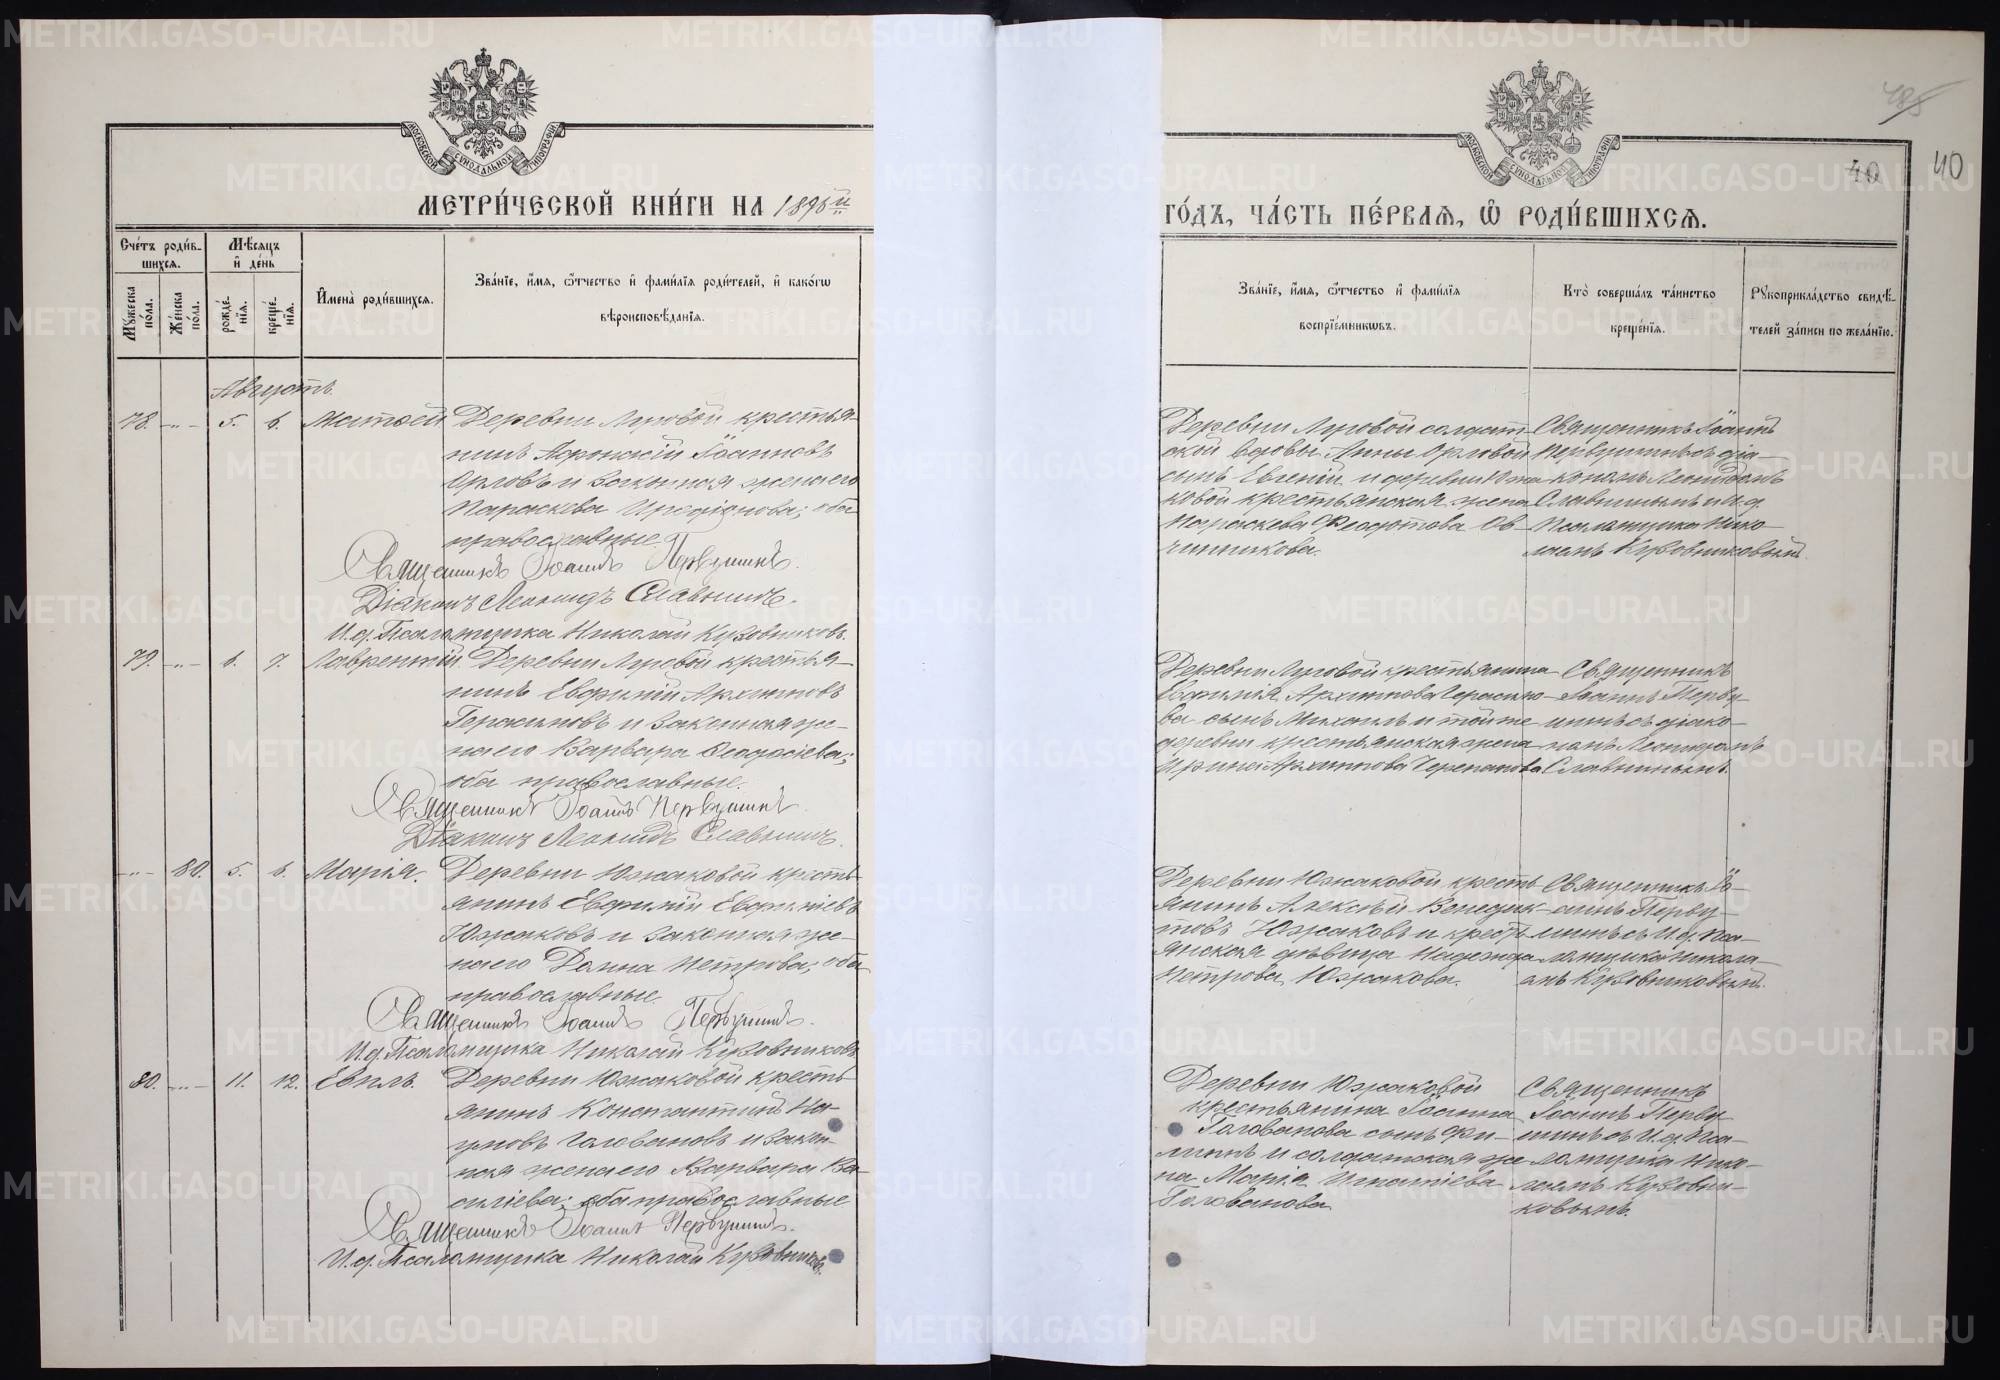 МЕТРИ́ЧЕСКОЙ КНИ́ГИ НА 1896й
ГО́ДЪ, ЧА́СТЬ ПЕ́РВАЯ, Ѿ РОДИ́ВШИХСЯ.
МОСКОВСКОЙ СѴНОДАЛЬНОЙ ТИПОГРАФІИ
МОСКОВСКОЙ СѴНОДАЛЬНОЙ ТИПОГРАФІИ
40
40
Сче́тъ роди́в-
шихся.
Мѣ́сяцъ
и҆ де́нь
Му́жеска по́ла.
Же́нска по́ла.
рожде́-
нїя.
креще́-
нїя.
И҆мена̀ роди́вшихся.
Зва́нїе, и҆́мя, ѻ҆́тчество и҆ фами́лїя роди́телей, и҆ како́гѡ
вѣроисповѣ́данїя.
Зва́нїе, и҆́мя, ѻ҆́тчество и҆ фами́лїя
воспрїе́мникѡвъ.
Кто̀ соверша́лъ та́инство
креще́нїя.
Рꙋкоприкла́дство свидѣ́-
телей за́писи по жела́нїю.
Августъ.
78. -"- 5. 6. Матѳей
Деревни Луговой крестья-
нинъ Іоанновъ
Орловъ и законная жена его
Параскева оба
православные.
Священникъ Іоаннъ Первушинъ.
Діаконъ Леонидъ Славнинъ.
И.д. Псаломщика Николай Кузовниковъ.
Деревни Луговой солдат-
ской вдовы Анны Орловой
сынъ Евгеній и деревни Южа
ковой крестьянская жена
Параскева Ов-
чинникова.
Священникъ Іоаннъ
Первушинъ съ діа-
кономъ Леонидомъ
Славнинымъ и И.д.
Псаломщика Нико-
лаемъ Кузовниковымъ.
79. -"- 6. 7. Лаврентій.
Деревни Луговой крестья-
нинъ Евфимій Архиповъ
Герасимовъ и законная же-
на его Варвара Ѳеодосіева;
оба православные.
Священникъ Іоаннъ Первушинъ.
Діаконъ Леонидъ Славнинъ.
Деревни Луговой крестьянина
Евфимія Архипова Герасимо-
ва сынъ Михаилъ и той же
деревни крестьянская жена
Ирина Архипова Черепанова
Священникъ
Іоаннъ Перву-
шинъ съ діако-
номъ Леонидомъ
Славнинымъ.
-"- 80. 5. 6. Марія.
Деревни Южаковой кресть-
янинъ Евфимій Евфиміевъ
Южаковъ и законная же-
на его Домна Петрова; оба
православные.
Священникъ Іоаннъ Первушинъ.
И.д. Псаломщика Николай Кузовниковъ
Деревни Южаковой кресть-
янинъ Алексѣй Венедик-
товъ Южаковъ и кресть
янская дѣвица Надежда
Петрова Южакова.
Священникъ Іо-
аннъ Перву-
шинъ съ И.д. Пса-
ломщика Никола-
емъ Кузовниковымъ.
80. -"- 11. 12. Евплъ.
Деревни Южаковой кресть-
янинъ Константинъ На-
умовъ Головановъ и закон-
ная жена его Варвара Ва-
силіева; оба православные
Священникъ Іоаннъ Первушинъ.
И.д. Псаломщика Николай Кузовниковъ.
Деревни Южаковой
крестьянина Іоанна
Голованова сынъ Фи-
липъ и солдатская же
на Марія Игнатіева
Голованова
Священникъ
Іоаннъ Перву-
шинъ съ И.д. Пса-
ломщика Нико-
лаемъ Кузовни-
ковымъ.